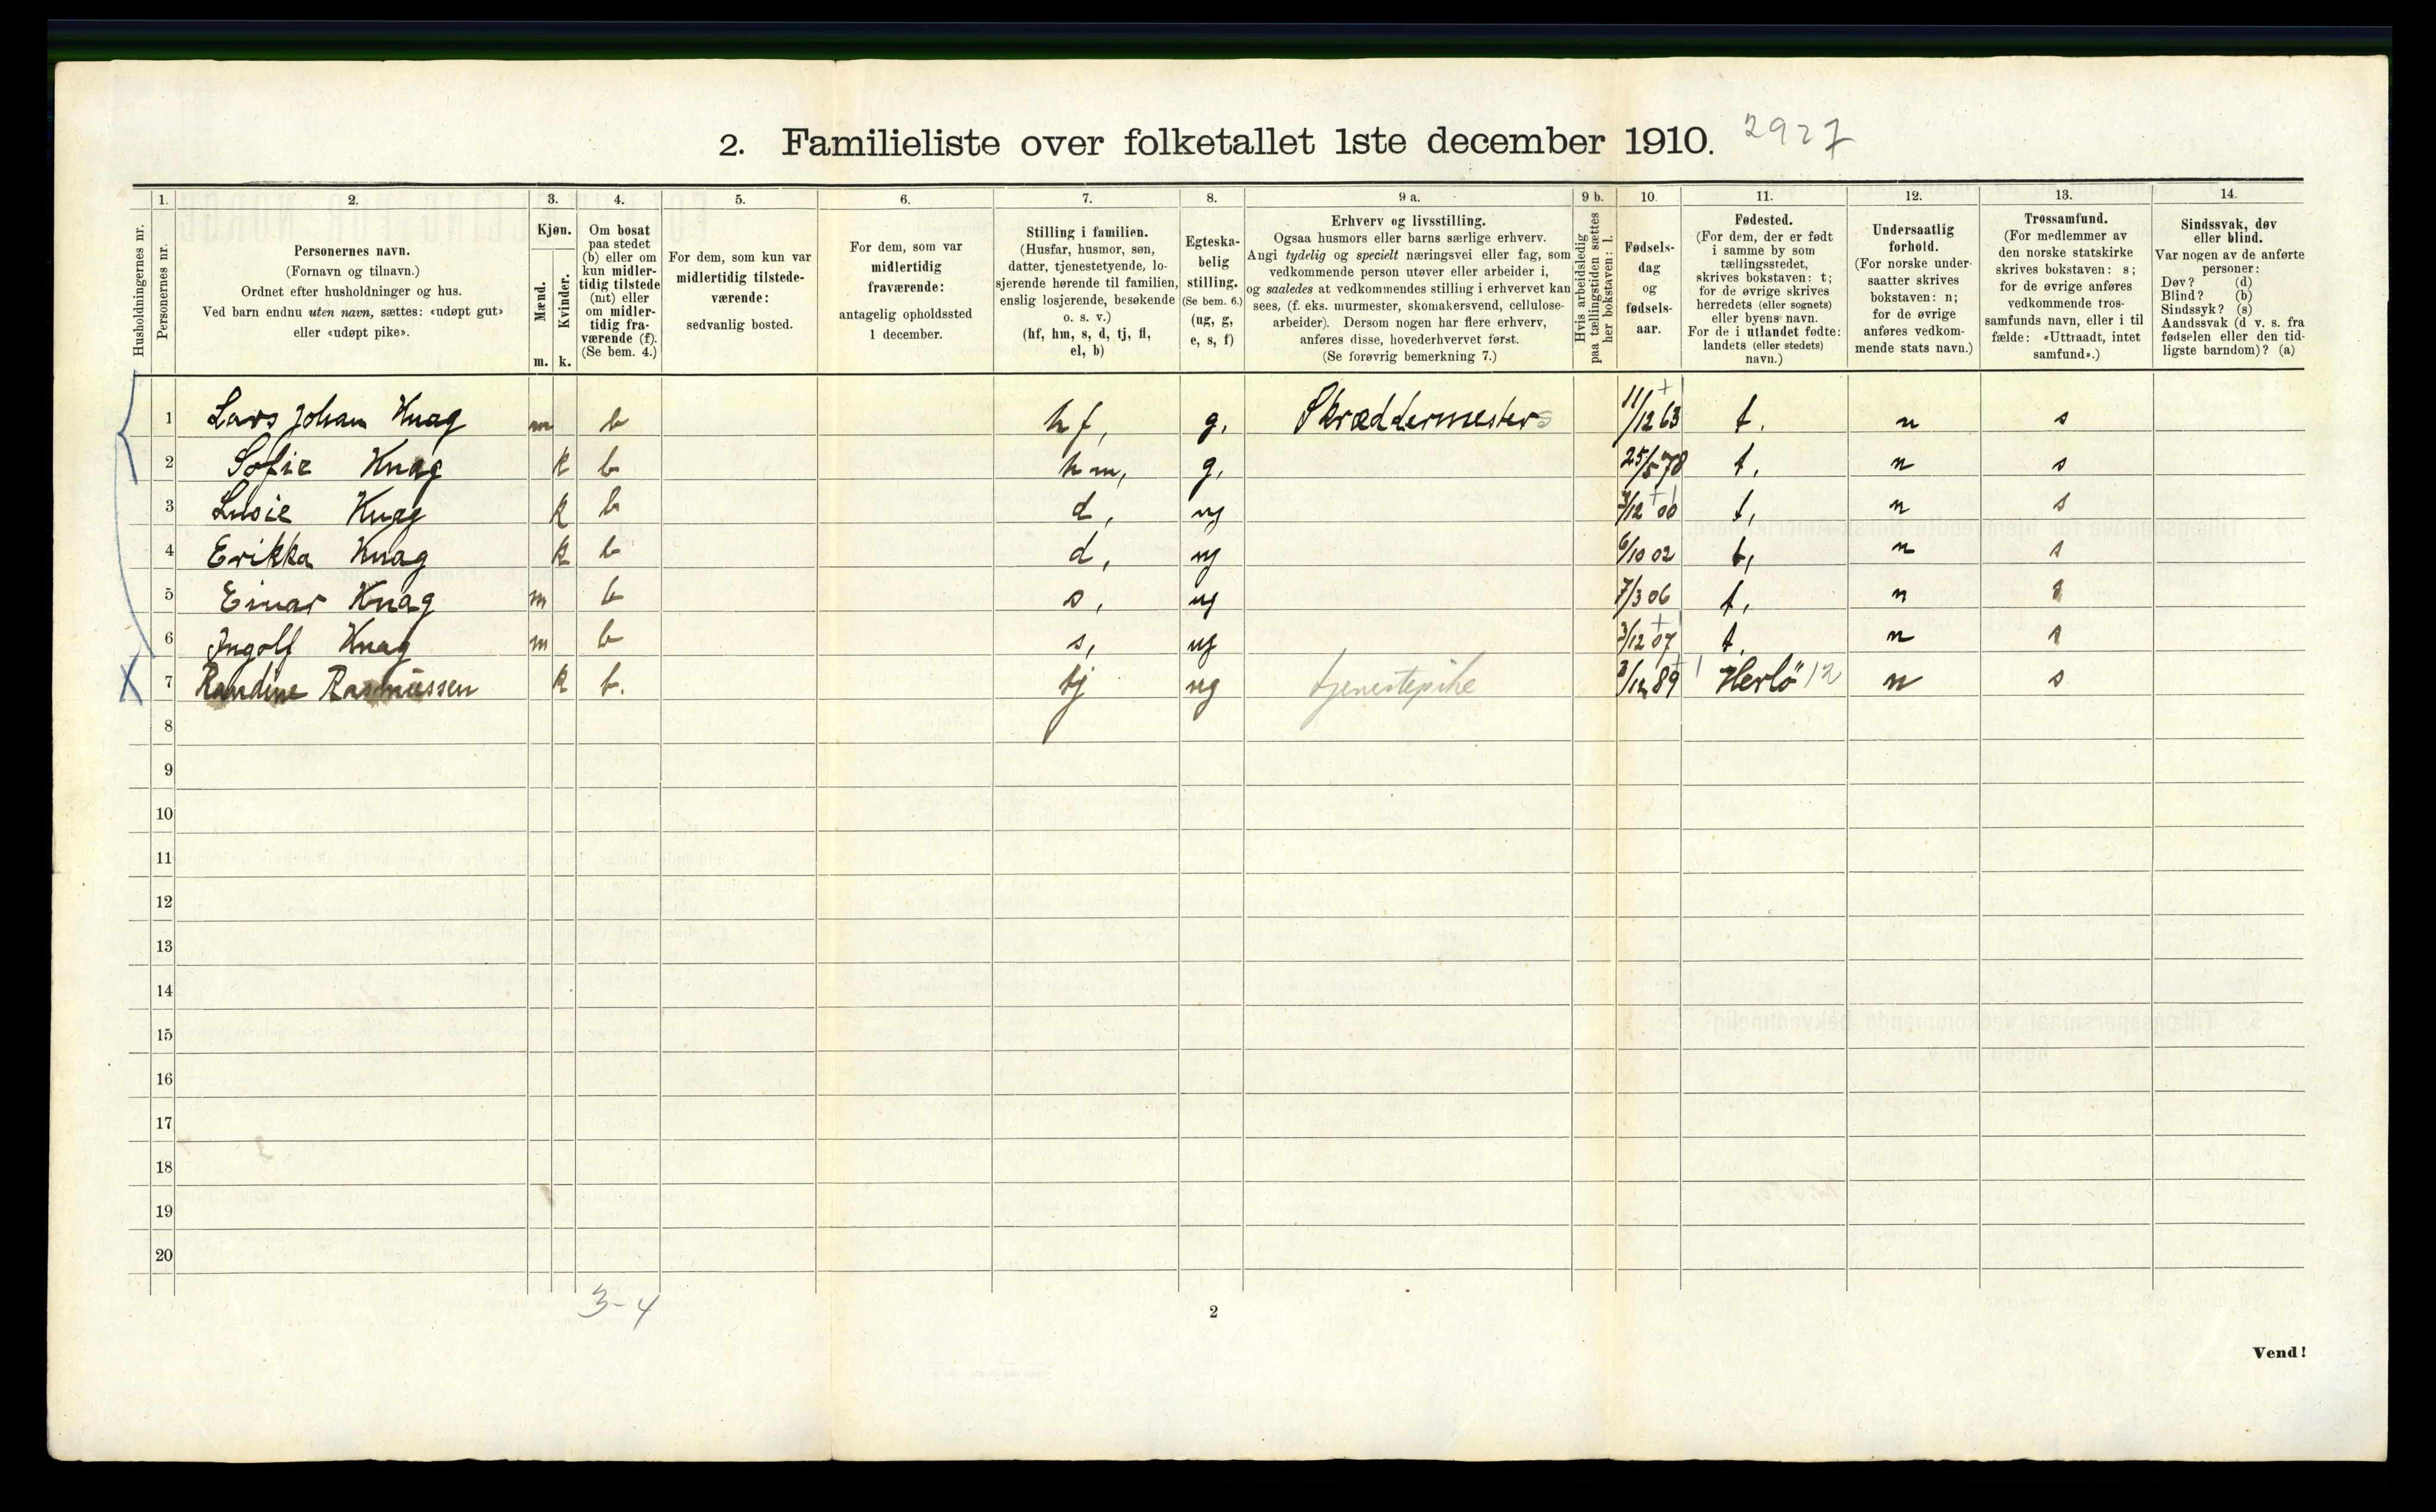 2. Familieliste over folketallet 1ste december 1910. 2927
1. 2. 3. 4. 5. 6. 7. 8. 9 a. 9 b. 10. 11. 12. 13. 14.
Husholdningernes nr.
Personernes nr.
Personernes navn.
(Fornavn og tilnavn.)
Ordnet efter husholdninger og hus.
Ved barn endnu uten navn, sættes: «udøpt gut»
eller «udøpt pike».
Kjøn.
Mænd.
m.
Kvinder.
k.
Om bosat
paa stedet
(b) eller om
kun midler-
tidig tilstede
(mt) eller
om midler-
tidig fra-
værende (f).
(Se bem. 4.)
For dem, som kun var
midlertidig tilstede-
værende:
sedvanlig bosted.
For dem, som var
midlertidig
fraværende:
antagelig opholdssted
1 december.
Stilling i familien.
(Husfar, husmor, søn,
datter, tjenestetyende, lo-
sjerende hørende til familien,
enslig losjerende, besøkende
o. s. v.)
(hf, hm, s, d, tj, fl,
el, b)
Egteska-
belig
stilling.
(Se bem. 6.)
(ug, g,
e, s, f)
Erhverv og livsstilling.
Ogsaa husmors eller barns særlige erhverv.
Angi tydelig og specielt næringsvei eller fag, som
vedkommende person utøver eller arbeider i,
og saaledes at vedkommendes stilling i erhvervet kan
sees, (f. eks. murmester, skomakersvend, cellulose-
arbeider). Dersom nogen har flere erhverv,
anføres disse, hovederhvervet først.
(Se forøvrig bemerkning 7.)
Hvis arbeidsledig
paa tællingstiden sættes
her bokstaven: l.
Fødsels-
dag
og
fødsels-
aar.
Fødested.
(For dem, der er født
i samme by som
tællingsstedet,
skrives bokstaven: t;
for de øvrige skrives
herredets (eller sognets)
eller byens navn.
For de i utlandet fødte:
landets (eller stedets)
navn.)
Undersaatlig
forhold.
(For norske under-
saatter skrives
bokstaven: n;
for de øvrige
anføres vedkom-
mende stats navn.)
Trossamfund.
(For medlemmer av
den norske statskirke
skrives bokstaven: s;
for de øvrige anføres
vedkommende tros-
samfunds navn, eller i til
fælde: «Uttraadt, intet
samfund».)
Sindssvak, døv
eller blind.
Var nogen av de anførte
personer:
Døv? (d)
Blind? (b)
Sindssyk? (s)
Aandssvak (d v. s. fra
fødselen eller den tid-
ligste barndom)? (a)
1 Lars Johan Knag m b hf, g, Skræddermester s 11/12 63 t. n s
2 Sofie Knag k b hm, g, 25/5 78 t, n s
3 Lusie Knag k b d, ug /12 00 t, n s
4 Erikka Knag k b d, ug 6/10 02 t, n s
5 Einar Knag m b s, ug 7/3 06 t, n s
6 Ingolf Knag m b s, ug 3/12 07 t. n s
7 Randine Rasmussen k b. tj ug tjenestepike /12 89 Herlö 12 n s
8
9
10
11
12
13
14
15
16
17
18
19
20
3-4
2
Vend!